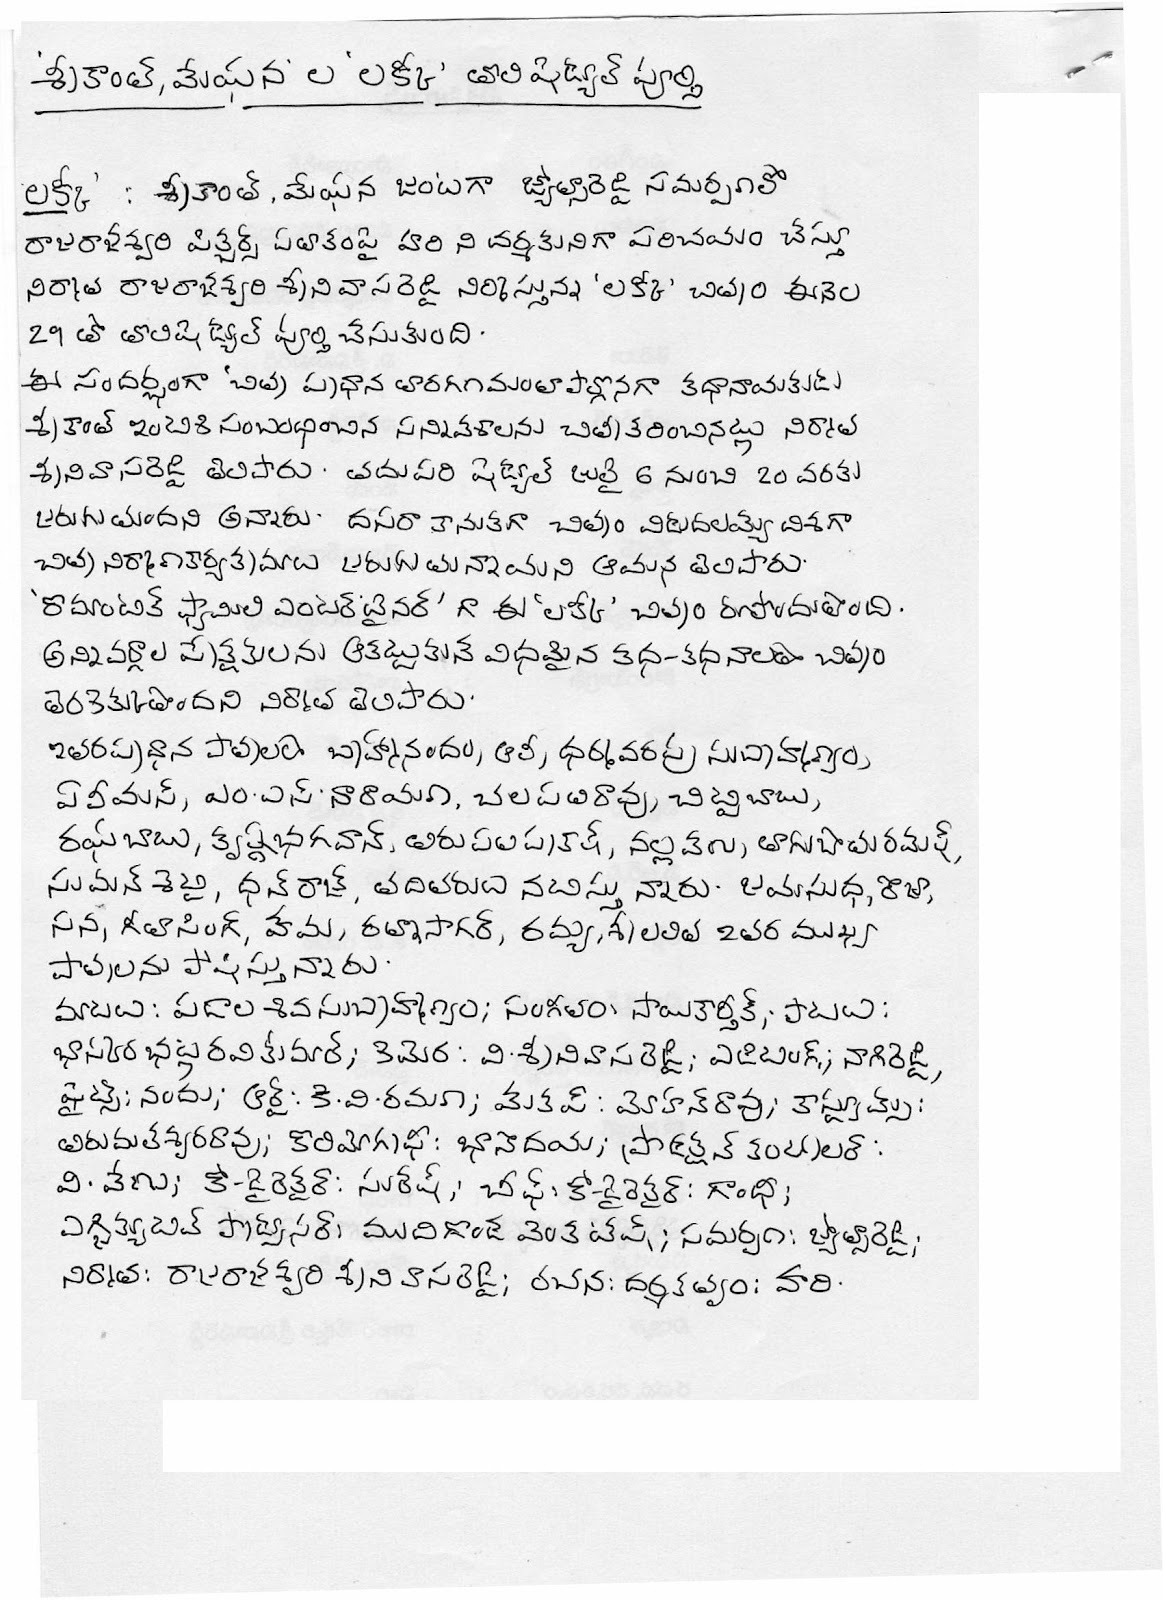 'శ్రీకాంత్, మేఘన' ల 'లక్కీ' తొలి షెడ్యూల్ పూర్తి
లక్కీ' : శ్రీకాంత్, మేఘన జంటగా జ్యోత్స్నారెడ్డి సమర్పణలో
రాజరాజేశ్వరి పిక్చర్స్ పతాకంపై హరి ని దర్శకునిగా పరిచయం చేస్తూ
నిర్మాత రాజరాజేశ్వరి శ్రీనివాసరెడ్డి నిర్మిస్తున్న 'లక్కీ' చిత్రం ఈనెల
29 తో తొలిషెడ్యూల్ పూర్తి చేసుకుంది.
ఈ సందర్భంగా 'చిత్ర ప్రధాన తారగణమంతా పాల్గొనగా కథానాయకుడు
శ్రీకాంత్ ఇంటికి సంబంధించిన సన్నివేశాలను చిత్రీకరించినట్లు నిర్మాత
శ్రీనివాసరెడ్డి తెలిపారు. తదుపరి షెడ్యూల్ జులై 6 నుంచి 20 వరకు
జరుగుతుందని అన్నారు. దసరా కానుకగా చిత్రం విడుదలయ్యే దిశగా
చిత్ర నిర్మాణకార్యక్రమాలు జరుగుతున్నాయని ఆయన తెలిపారు.
'రొమాంటిక్ ఫ్యామిలీ ఎంటర్ టైనర్' గా ఈ 'లక్కీ' చిత్రం రూపొందుతోంది.
అన్నివర్గాల ప్రేక్షకులను ఆకట్టుకునే విధమైన కథ-కథనాలతో చిత్రం
తెరకెక్కుతోందని నిర్మాత తెలిపారు.
ఇతరప్రధాన పాత్రలలో బ్రహ్మానందం, ఆలీ, ధర్మవరపు సుబ్రహ్మణ్యం,
ఏవీయస్, ఎం.ఎస్.నారాయణ, చలపతిరావు, చిట్టిబాబు,
రఘుబాబు, కృష్ణభగవాన్, తిరుపతిప్రకాష్, నల్లవేణు, తాగుబోతురమేష్,
సుమన్ శెట్టి, ధన్ రాజ్, తదితరులు నటిస్తున్నారు. జయసుధ, రోజా,
సన, గీతాసింగ్, హేమ, రత్నాసాగర్, రమ్య, శ్రీలలిత ఇతర ముఖ్య
పాత్రలను పోషిస్తున్నారు.
మాటలు: పడాల శివసుబ్రహ్మణ్యం; సంగీతం: సాయికార్తీక్; పాటలు:
భాస్కరభట్ల రవికుమార్; కెమెరా: వి.శ్రీనివాసరెడ్డి; ఎడిటింగ్; నాగిరెడ్డి,
ఫైట్స్: నందు; ఆర్ట్: కె.వి.రమణ; మేకప్: మోహన్ రావు; కాస్ట్యూమ్స్:
తిరుమలేశ్వరరావు; కొరియోగ్రఫీ: భానోదయ; ప్రొడక్షన్ కంట్రోలర్:
వి.వేణు; కో-డైరెక్టర్: సురేష్; చీఫ్: కో-డైరెక్టర్: గాంధీ;
ఎగ్జిక్యూటివ్ ప్రొడ్యూసర్: ముదిగొండ వెంకటేష్; సమర్పణ: జ్యోత్స్నారెడ్డి;
నిర్మాత: రాజరాజేశ్వరి శ్రీనివాసరెడ్డి; రచన: దర్శకత్వం: హరి.